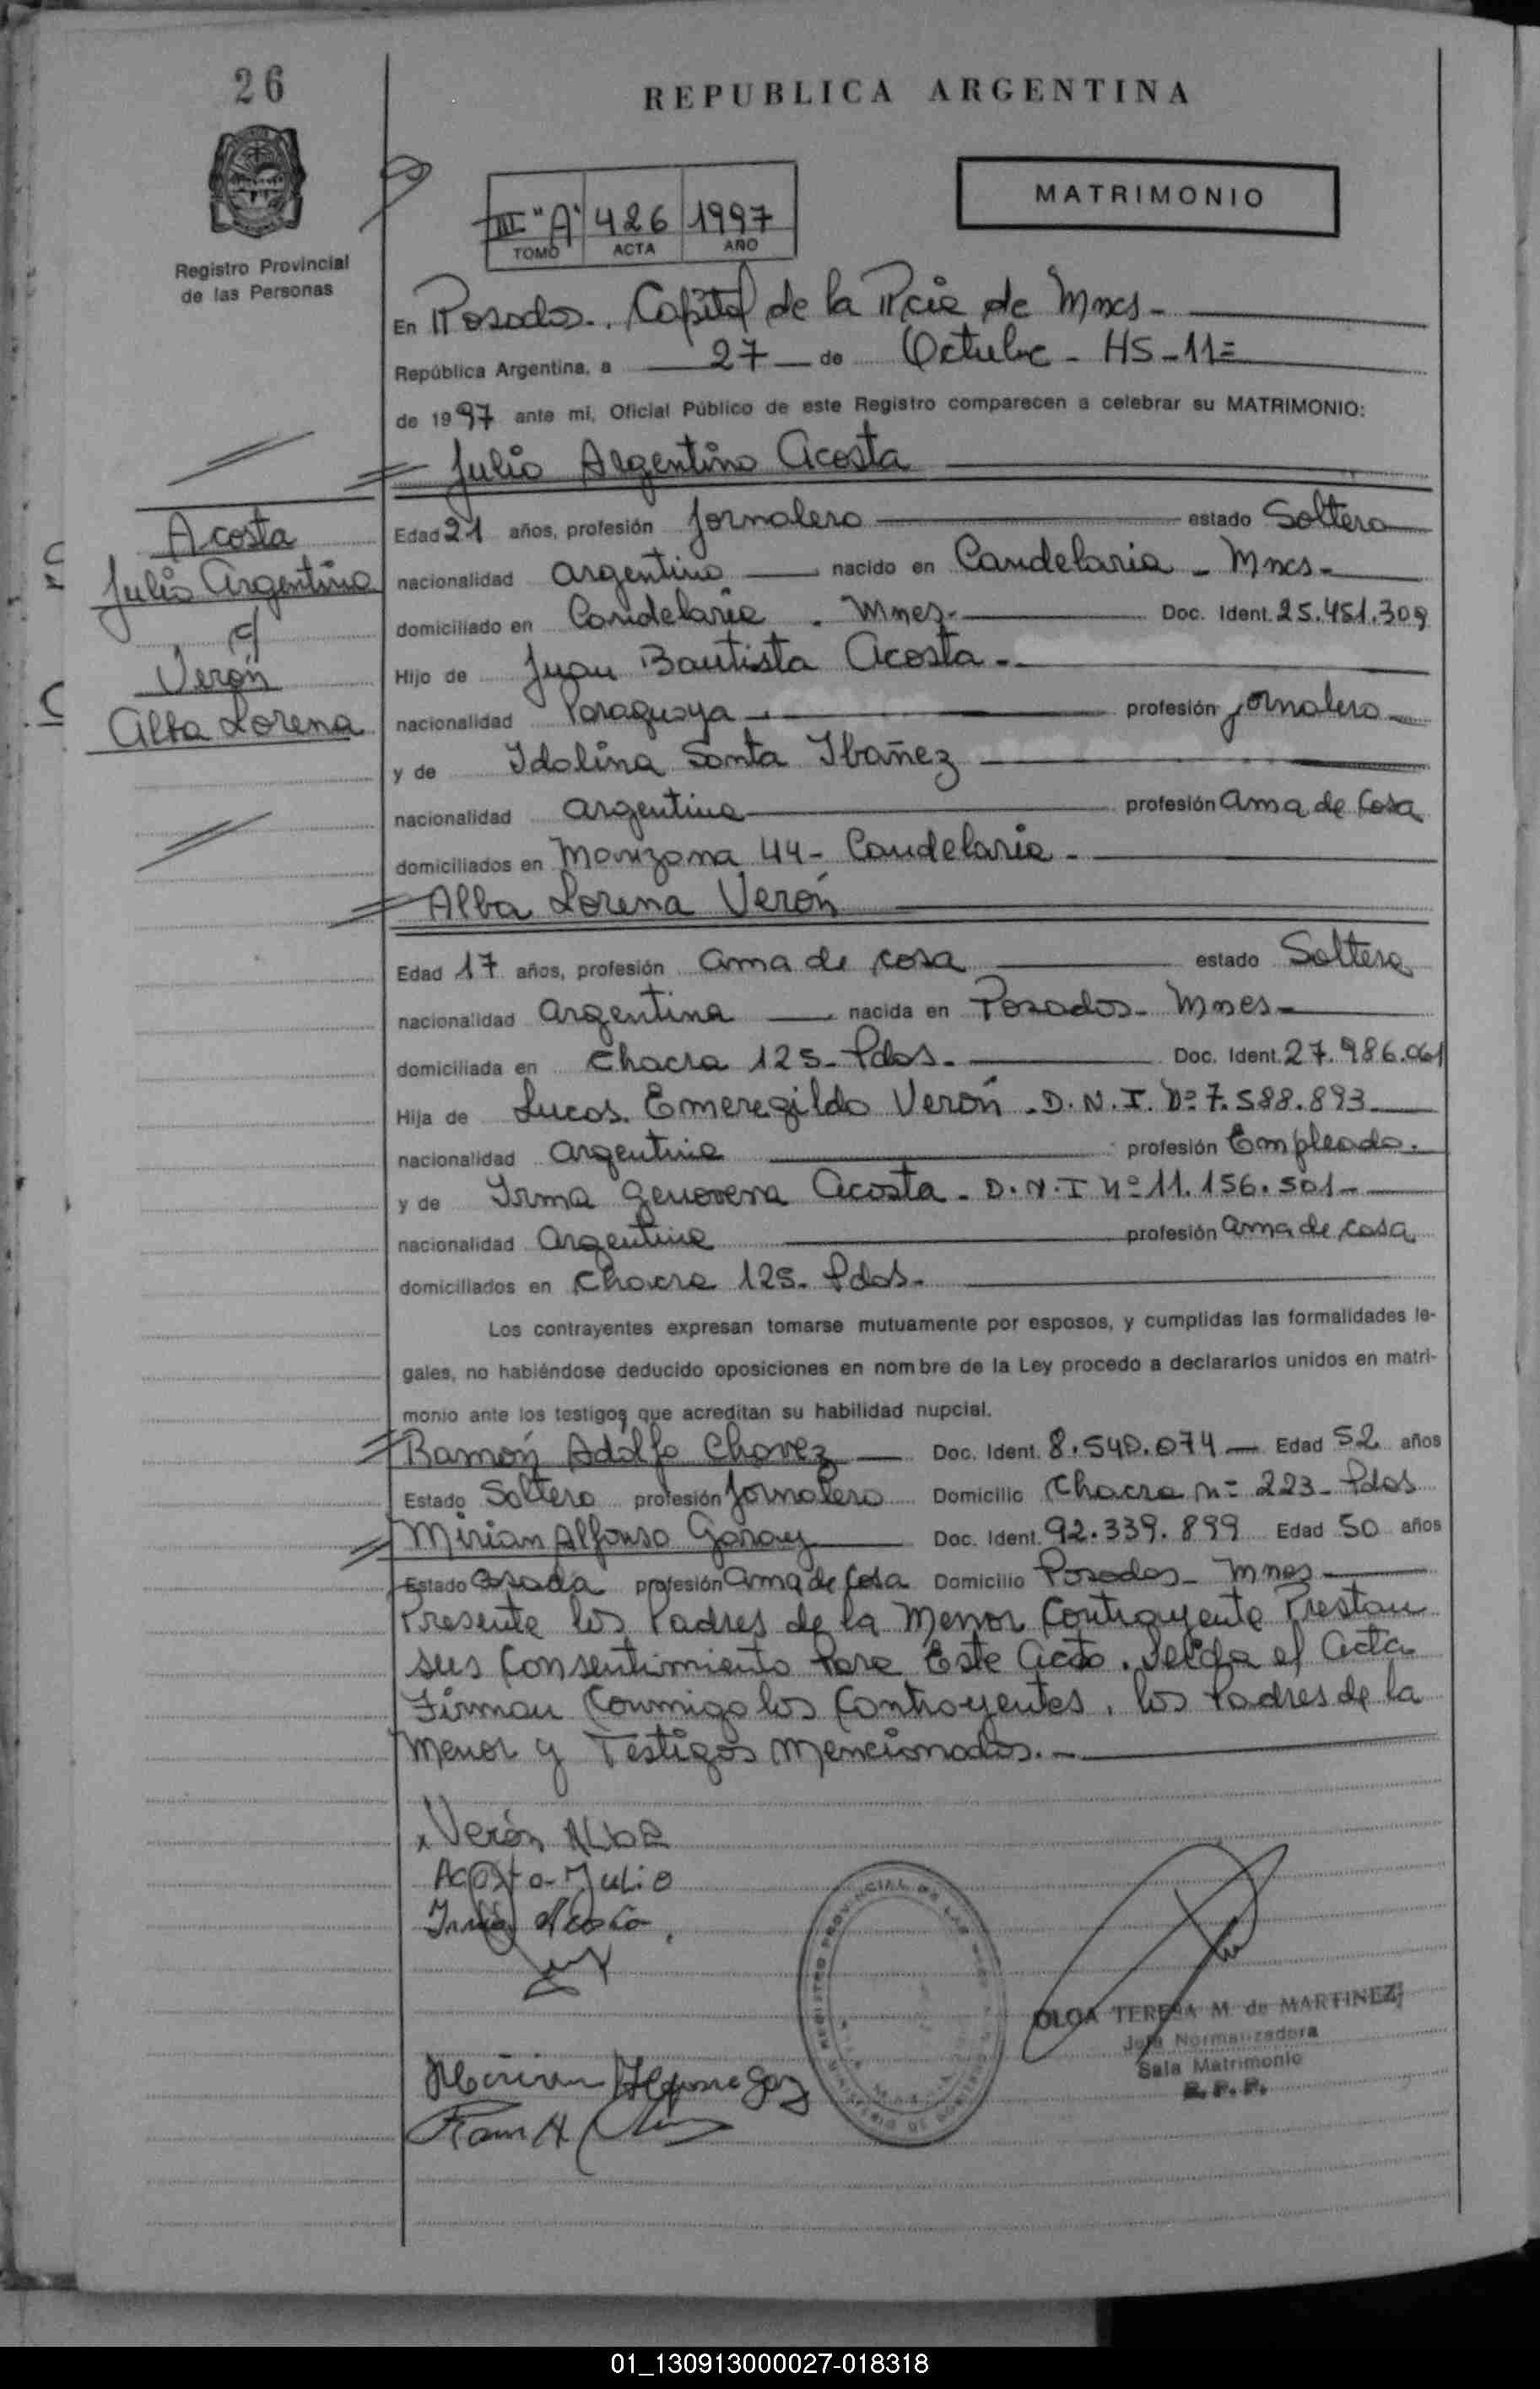 26
REPUBLICA ARGENTINA
MATRIMONIO
III "A" 426 1997
TOMO ACTA AÑO
Registro Provincial
de las Personas
En Posadas. Capital de la Pcia de Mnes-
República Argentina, a 27 de Octubre - HS-11=
de 1997 ante mi, Oficial Público de este Registro comparecen a celebrar su MATRIMONIO:
Julio Argentino Acosta
Acosta
Julio Argentino
c/
Verón
Alba Lorena
Edad 21 años, profesión Jornalero estado Soltero
nacionalidad argentino nacido en Candelaria - Mnes-
domiciliado en Candelaria - Mnes- Doc. Ident. 25.451.309
Hijo de Juan Bautista Acosta -
nacionalidad Paraguaya profesión jornalero
y de Idolina Santa Ibañez
nacionalidad argentina profesión ama de Casa
domiciliados en Manzana 44- Candelaria -
Alba Lorena Verón
Edad 17 años, profesión ama de casa estado Soltera
nacionalidad argentina nacida en Posadas- Mnes-
domiciliada en Chacra 125- Pdas- Doc. Ident. 27.986.061
Hija de Lucas Emeregildo Verón -D.N.I. Nº 7.588.893
nacionalidad argentina profesión Empleado.
y de Irma Genoveva Acosta - D.N.I Nº 11.156.501-
nacionalidad argentina profesión ama de casa
domiciliados en Chacra 125- Pdas-
Los contrayentes expresan tomarse mutuamente por esposos, y cumplidas las formalidades le-
gales, no habiéndose deducido oposiciones en nombre de la Ley procedo a declararlos unidos en matri-
monio ante los testigos que acreditan su habilidad nupcial.
Ramón Adolfo Chavez Doc. Ident. 8.540.074 Edad 52 años
Estado Soltero profesión Jornalero Domicilio Chacra n= 223- Pdas
Mirian Alfonso Garay Doc. Ident. 92.339.899 Edad 50 años
Estado Casada profesión ama de Casa Domicilio Posadas- Mnes
Presente los Padres de la Menor Contrayente Prestan
sus Consentimiento Para Este Acto. Leida el acta
Firman Conmigo los Contrayentes, los Padres de la
Menor y Testigos Mencionados.-
x Verón ALbA
Acosta Julio
Irma Acosta
OLGA TERESA M. de MARTINEZ
Jefa Normalizadora
Sala Matrimonio
R. P. P.
01_130913000027-018318